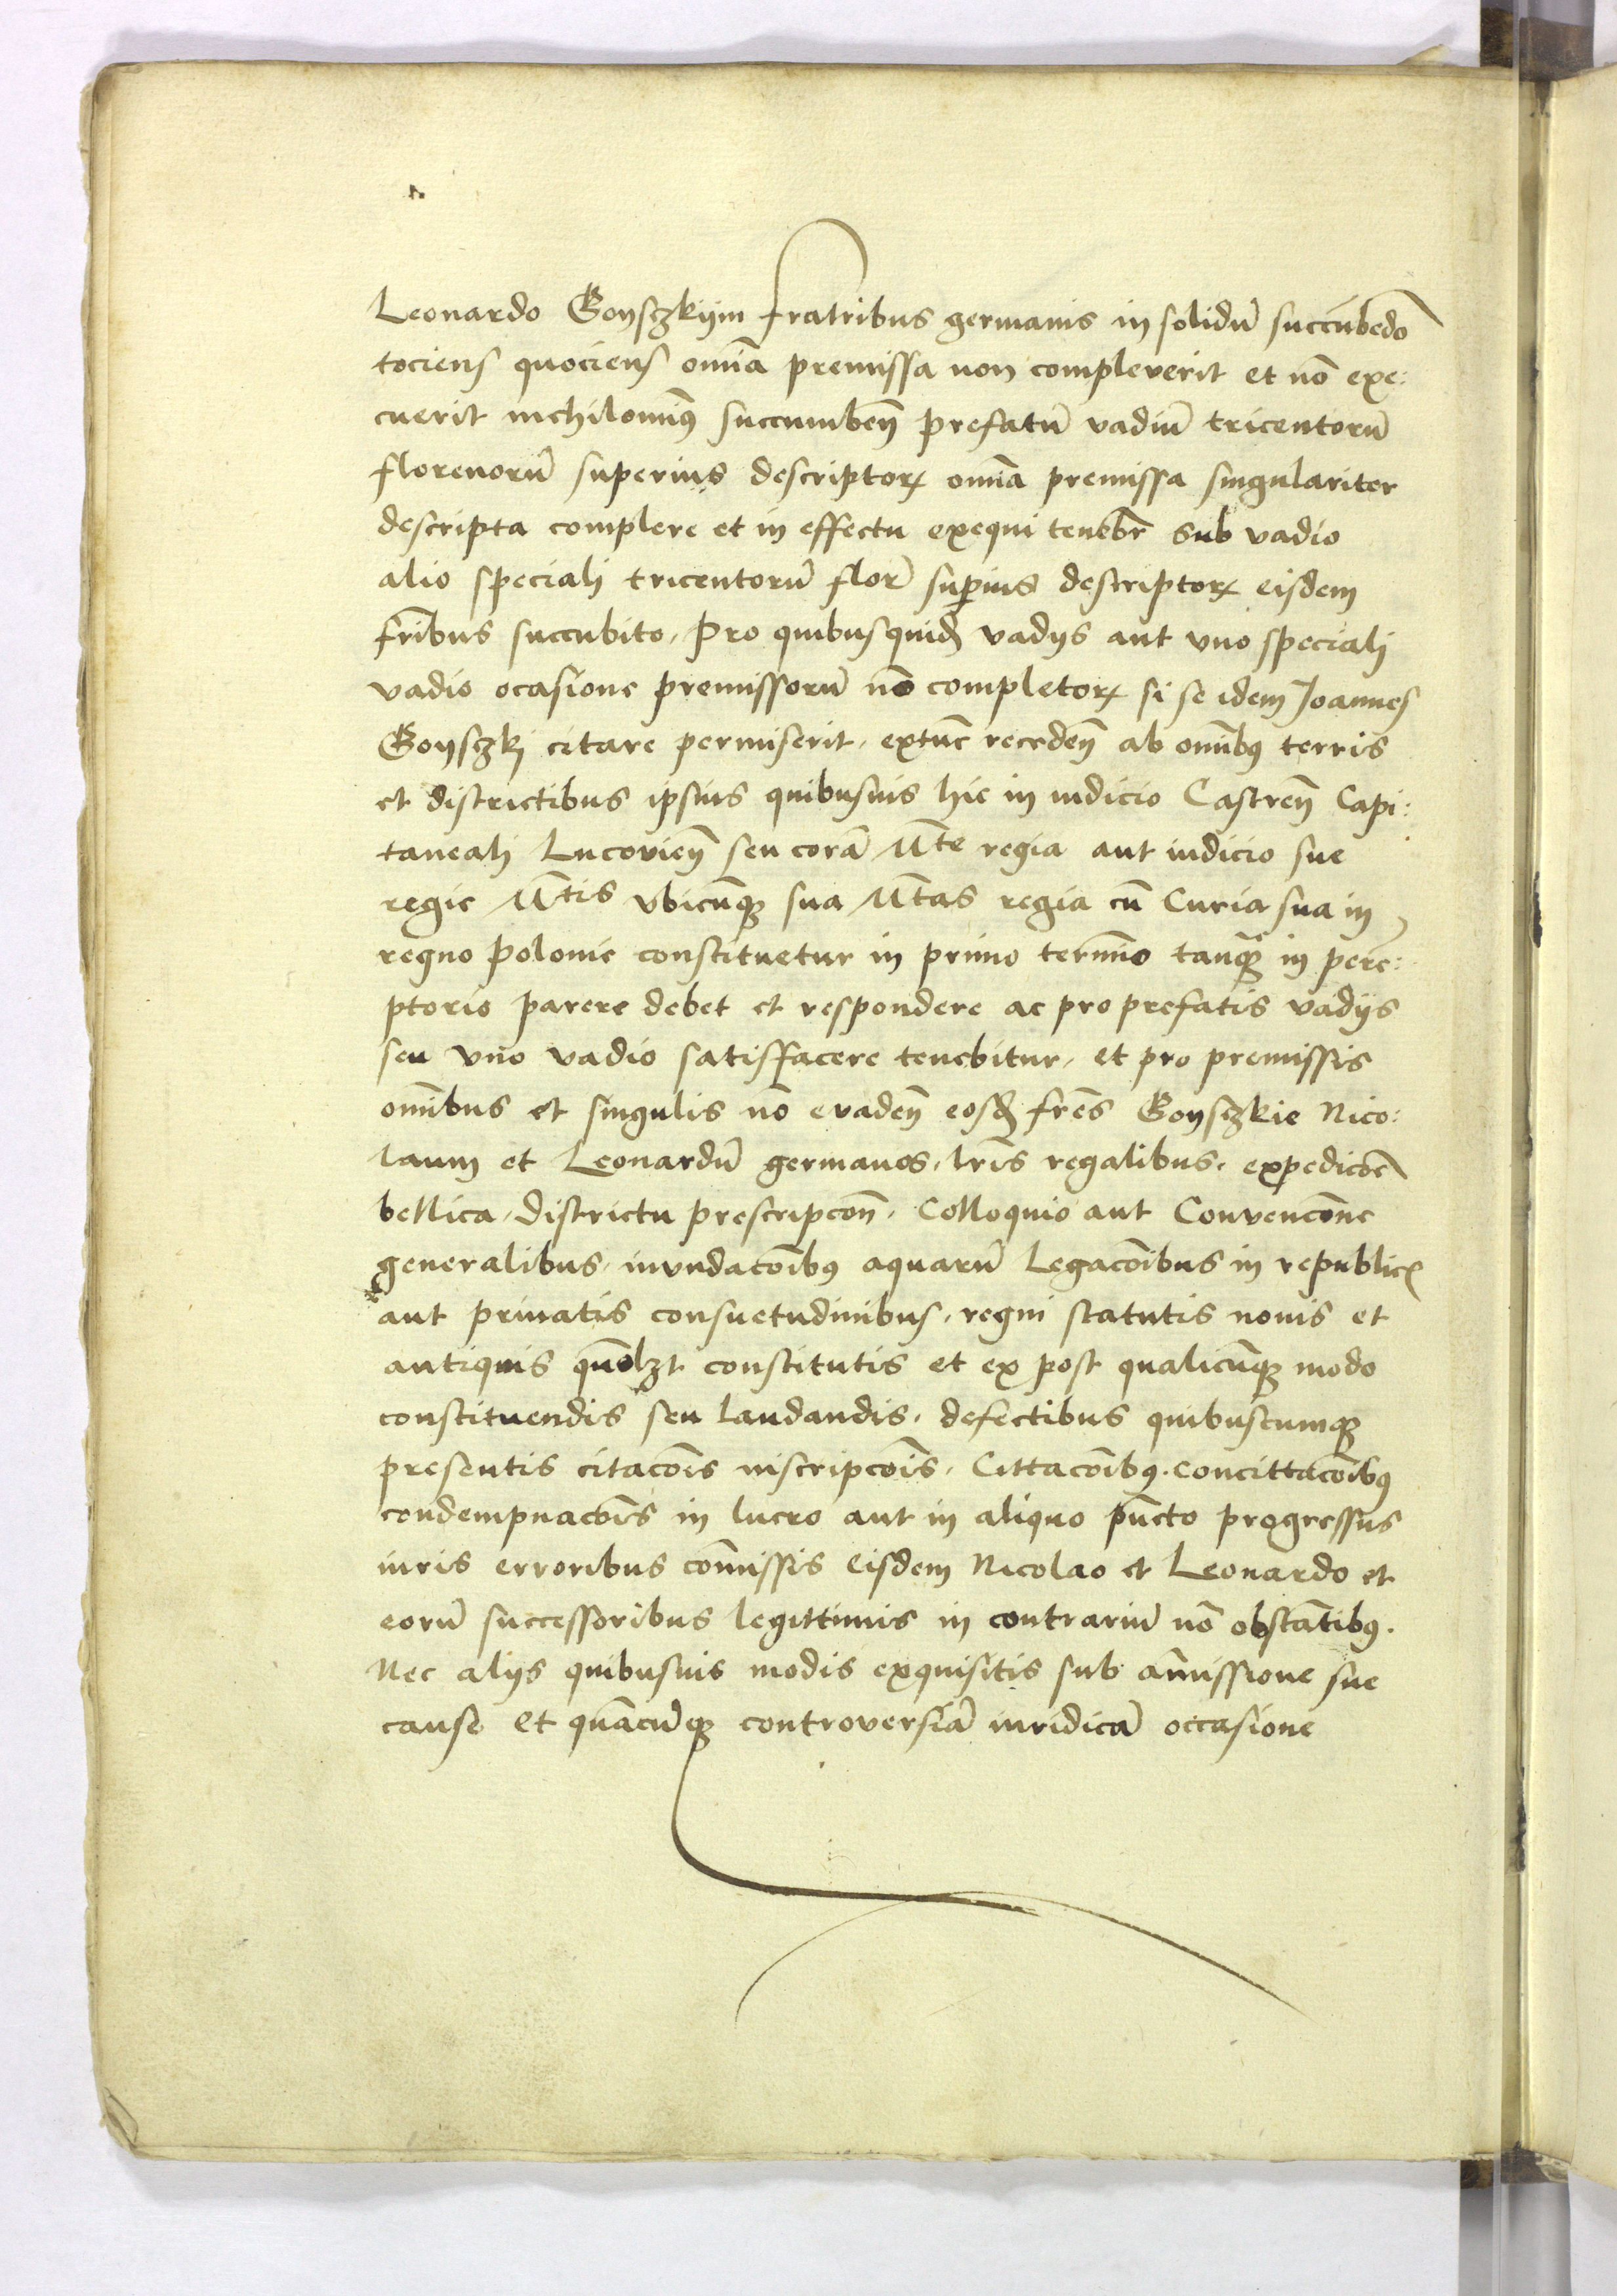 Leonardo Goysczkijm fratribus germanis in solidū succūbēdo
tociens quociens om̄ia premissa non compleverit et nō exe:
cuerit nichilomin9 succumbeñ prefatū vadiū tricentorū
florenorū superius descriptorꝝ om̄ia premissa singulariter
descripta complere et in effectu exequi tenebr̄ sub vadio
alio speciali tricentorū flor̄ sup̄ius descriptorꝝ eisdem
fr̄ibus succubito, Pro quibusquid̄ vadijs aut vno speciali
vadio ocasione premissorū nō completorꝝ si se idem Joannes
Goysczkj citare permiserit, extūc recedeñ ab om̄ib9 terris
et districtibus ipsius quibusuis hic in iudicio Castreñ Capi:
taneali Lucovieñ seu corā M̄te regia aut iudicio sue
regie M̄tis vbicūqꝫ sua M̄tas regia cū Curia sua in
regno Polonie constituetur in primo termīo tanqꝫ̄ in perē:
ptorio parere debet et respondere ac pro prefatis vadijs
seu vno vadio satisfacere tenebitur, et pro premissis
om̄ibus et singulis nō evadeñ eosd̄ fr̄es Goysczkie Nico:
laum et Leonardū germanos, lr̄is regalibus, expedicōe
bellica, districtu prescripcoñ, Colloquio aut Convencōne
generalibus, invndacōib9 aquarū Legacōibus in republicꝭ
aut priuatis consuetudinibus, regni statutis nouis et
antiquis quōlꝫt constitutis et ex post qualicūqꝫ modo
constituendis seu laudandis, defectibus quibuscumqꝫ
presentis citacōis inscripcōis, Cittacōib9, concittacōib9
condempnacōis in lucro aut in aliquo pūcto progressus
iuris erroribus cōmissis Eisdem Nicolao et Leonardo et
eorū successoribus legittimis in contrariū nō obstātib9.
Nec alijs quibusuis modis exquisitis sub am̄issione sue
cause Et quācūqꝫ controversiā iuridicā occasione